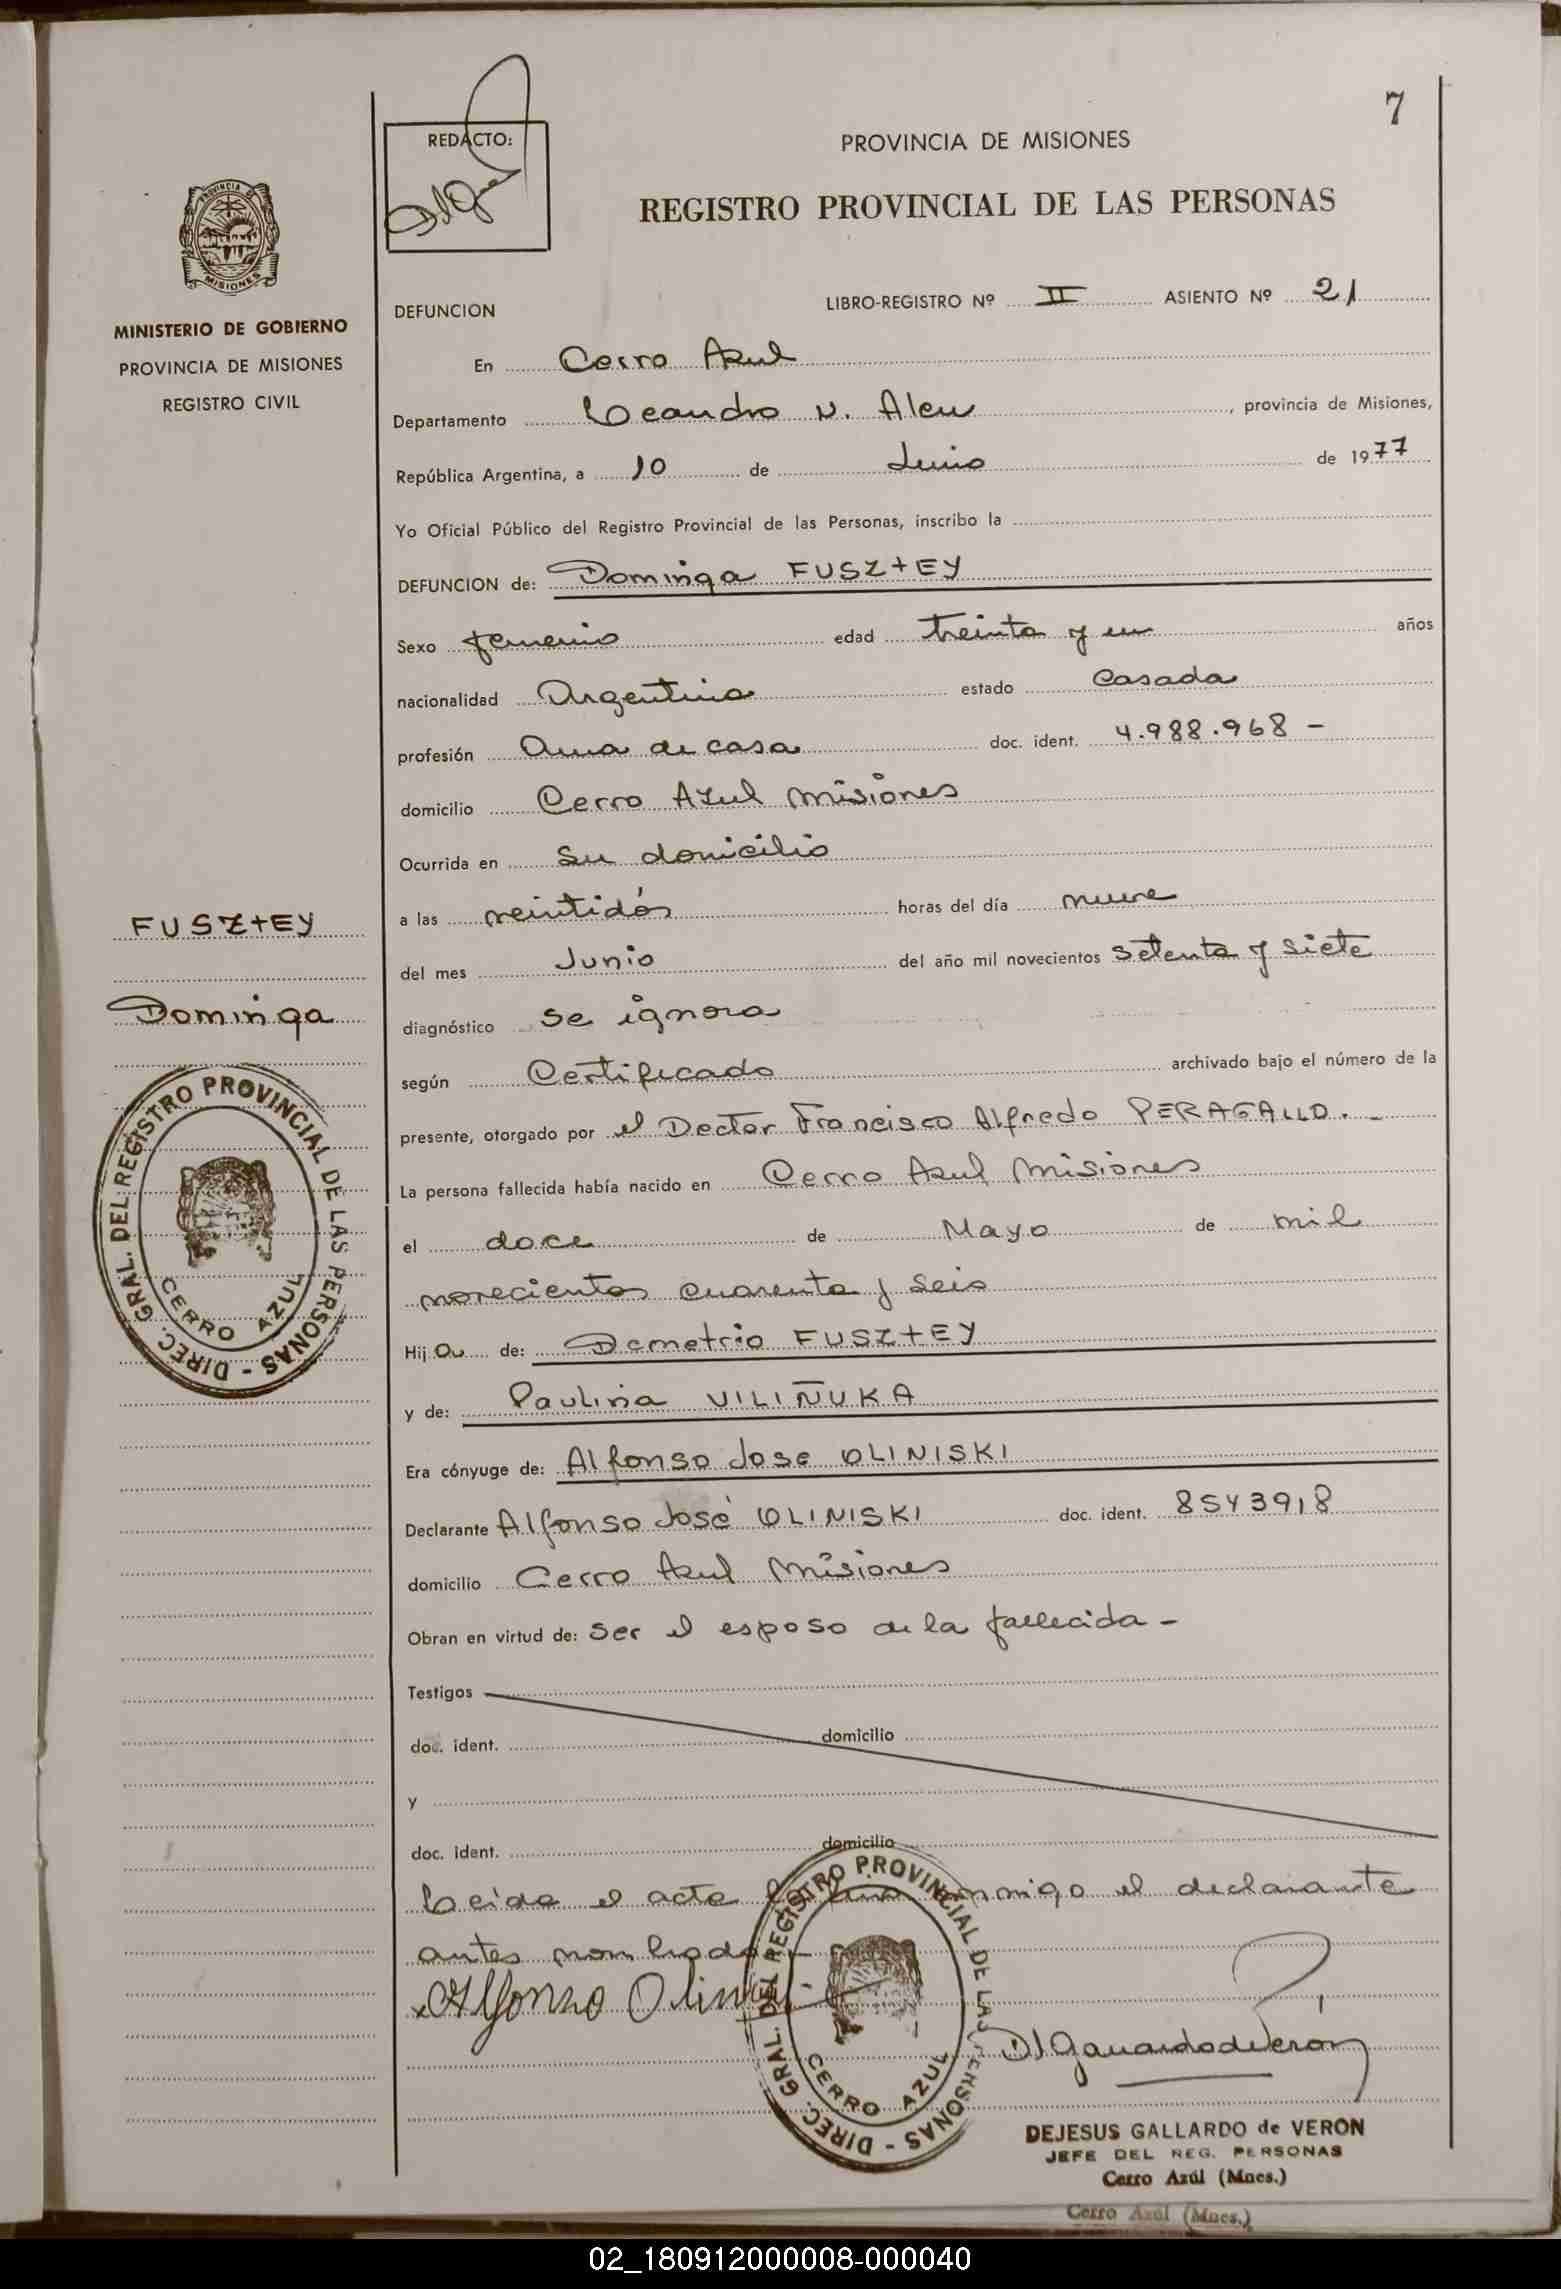 7
REDACTO:
PROVINCIA DE MISIONES
REGISTRO PROVINCIAL DE LAS PERSONAS
PROVINCIA DE
MISIONES
MINISTERIO DE GOBIERNO
PROVINCIA DE MISIONES
REGISTRO CIVIL
DEFUNCION LIBRO-REGISTRO Nº II ASIENTO Nº 21
En Cerro Azul
Departamento Leandro N. Alem, provincia de Misiones,
República Argentina, a 10 de Junio de 1977
Yo Oficial Público del Registro Provincial de las Personas, inscribo la
DEFUNCION de: Dominga FUSZTEY
Sexo femenino edad treinta y un años
nacionalidad Argentina estado Casada
profesión Ama de casa doc. ident. 4.988.968 -
domicilio Cerro Azul Misiones
Ocurrida en Su domicilio
a las veintidós horas del día nueve
del mes Junio del año mil novecientos setenta y siete
diagnóstico se ignora
según Certificado archivado bajo el número de la
presente, otorgado por el Doctor Francisco Alfredo PERAGALLO. -
La persona fallecida había nacido en Cerro Azul Misiones
el doce de Mayo de mil
novecientos cuarenta y seis
Hija de: Demetrio FUSZTEY
y de: Paulina VILIÑUKA
Era cónyuge de: Alfonso Jose OLINISKI
Declarante Alfonso José OLINISKI doc. ident. 8543918
domicilio Cerro Azul Misiones
Obran en virtud de: Ser el esposo de la fallecida -
Testigos
doc. ident. domicilio
y
doc. ident. domicilio
Leida el acta la firma conmigo el declarante
antes nombrado -
x Alfonso Olin
D J Gallardo de Verón
DEJESUS GALLARDO de VERON
JEFE DEL REG. PERSONAS
Cerro Azúl (Mnes.)
Cerro Azúl (Mnes.)
FUSZTEY
Dominga
DIREC. GRAL. DEL REGISTRO PROVINCIAL DE LAS PERSONAS -
CERRO AZUL
DIREC. GRAL. DEL REGISTRO PROVINCIAL DE LAS PERSONAS -
CERRO AZUL
02_180912000008-000040